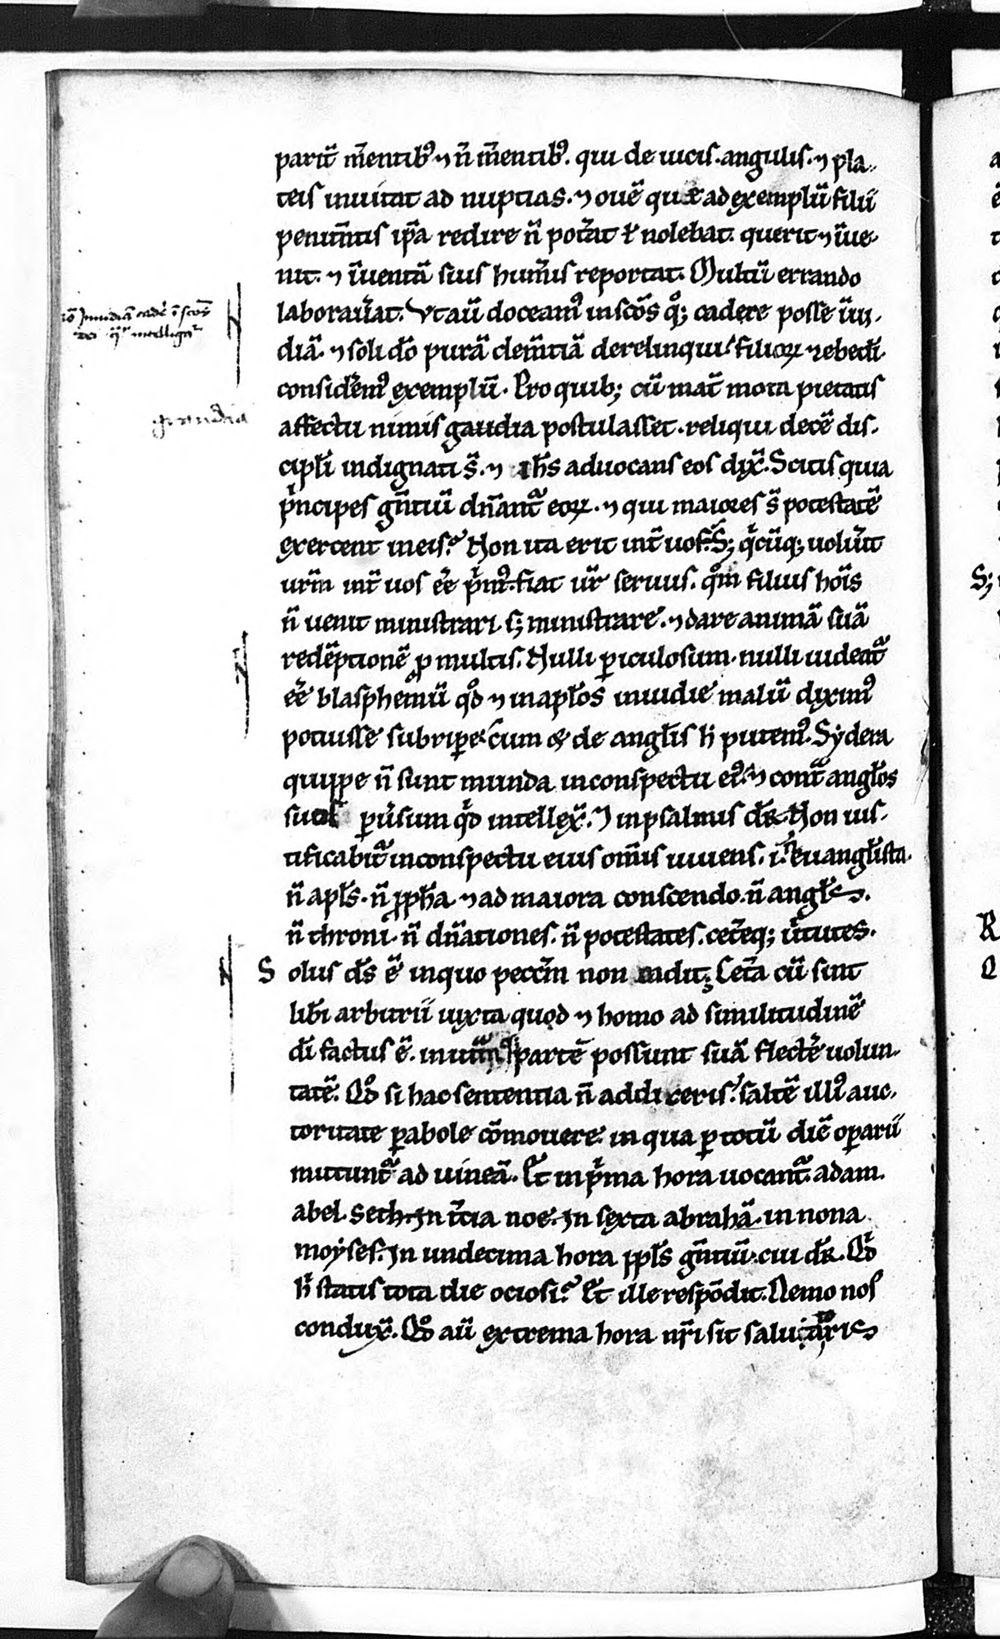 parit̄ m̄entib᷒ ⁊ n̄ m̄entib᷒. qui de uicis. angulis. ⁊ pla
teis inuitat ad nuptias. ⁊ ouē que ad exemplū filii
penitn̄tis ip̄a redire n̄ potāt ł nolebat. querit ⁊ īue
nit. ⁊ īuentā suis hum̄is reportat. Multū errando
laborau̓at. Vt aū doceam᷒ in sc̄os q̊ꝫ cadere posse īui
diā. ⁊ soli dō purā clem̄tiā derelinqui. filioꝝ zebedei
consid̓em᷒ exemplū. Pro quibꝫ cū mat̄ mota pietatis
affectu nimis gaudia postulasset. reliqui decē dis
cipl̄i indignati s̄. ⁊ ih̄s aduocans eos dix̄. Scitis quia
p̓ncipes gn̄tiū dn̄ant᷑ eoꝝ. ⁊ qui maiores s̄ potestatē
exercent in eis. Non ita erit int̄ uos. Sꝫ q̓cūqꝫ uolu̓it
ur̄m int̄ uos ēe p̓m᷒. fiat ur̄ seruus. q̄m filius hoīs
n̄ uenit ministrari. sꝫ ministrare. ⁊ dare animā suā
redēptionē ꝓ multis. Nulli ꝑiculosum. nulli uideat᷑
ēe blasphemū q̊d ⁊ in apl̄os inuidie malū dixim᷒
potuisse subripere. cum & de angl̄is h̄ putem᷒. Sydera
quippe n̄ sunt munda in conspectu ei᷒. ⁊ cont̄ angl̄os
suos ꝑu̓sum q̓d intellex̄. ⁊ in psalmis dr̄. Non ius
tificabit᷑ in conspectu eius om̄is uiuens. euangl̄ista.
n̄ apl̄s. n̄ ꝓph̄a. ⁊ ad maiora conscendo. n̄ angl̄s.
n̄ throni. n̄ dn̄ationes. n̄ potestates. cet̓eqꝫ u̓tutes.
Solus ds̄ ē in quo pecc̄m non cadit. Cet̓a cū sint
lib̓i arbitrii iuxta quod ⁊ homo ad similitudinē
di̅ factus ē. in partē possunt suā flect̓e uolun
tatē. Qd̓ si hac sententia n̄ addiceris. saltē illi᷒ auc
toritate ꝑabole cōmouere. in qua ꝑ totū diē oꝑarii
mittunt᷑ ad uineā. Et in p̓ma hora uocant᷑. adam.
abel. seth. In t̓cia noe. In sexta abrahā. in nona
moyses. In undecima hora ppl̄s gn̄tiū. cui dr̄. Qd̓
h̓ statis tota die ociosi. Et ille respōdit. Nemo nos
condux̄. Qd̓ aū extrema hora nr̄i sit saluatoris